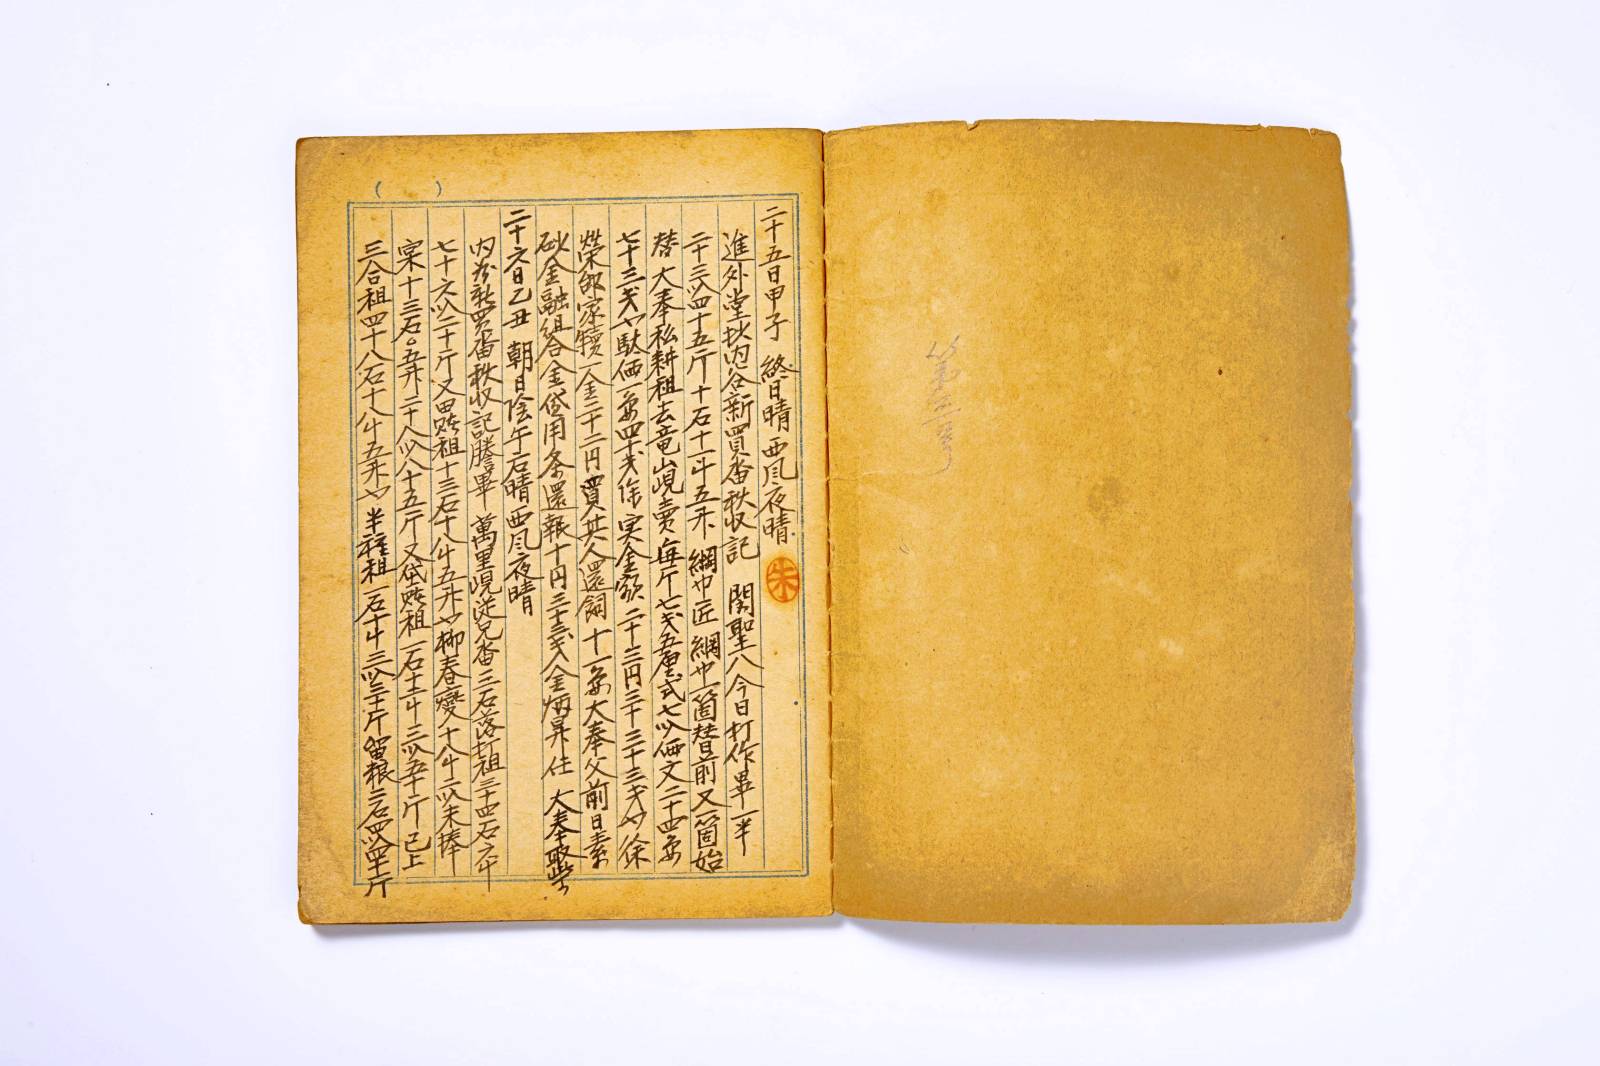 二十五日甲子 終日晴 西風夜晴 朱
進外堂抄內谷新買畓秋収記 関聖八今日打作畢一半
二十三以四十五斤十石十一斗五升 網巾匠 網巾一箇替前又一箇始
替 大奉私耕租去竜山峴賣每斤七戈五厘式七以価文二十四
七十三戈也駄価一 四十戈除 実金額二十三円三十三戈也 徐
榮 家犢一金二十二円買其人還飼十一 大奉父前日素
砂金融組合金貸用条還報十円三十三戈金炳昇仕 大奉
二十六日乙丑 朝日陰午后晴 西風夜晴
內 新買畓秋収記謄畢 萬里峴從兄畓三石落打租三十四石六斗
七十六以二十斤又田賭租十三石十八斗五升也柳春 十八斗二以未捧
宲十三石〇五升二十八以八十五斤又垈賭租一石十二斗三以五十斤已上
三合租四十八石十八斗五升也 半種租一石十斗三以三十斤 留粮二石四以四十斤